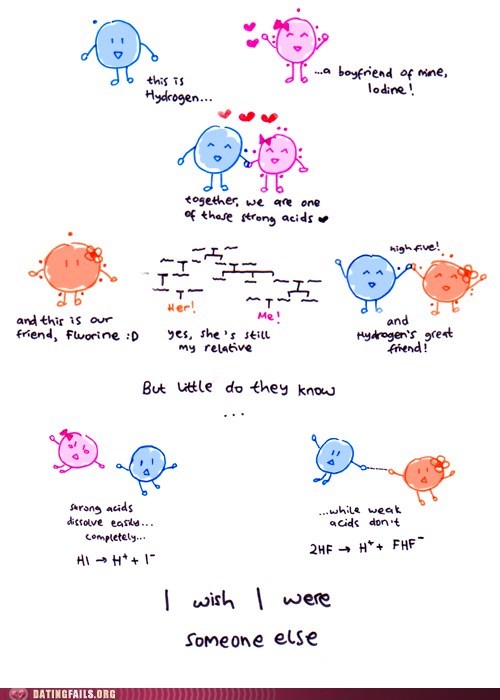 this is
Hydrogen...
...a boyfriend of mine,
Iodine!
together, we are one
of those strong acids
and this is our
friend, Fluorine :D
Her!
Me!
yes, she's still
my relative
high five!
and
Hydrogen's great
friend!
But little do they know
...
strong acids
dissolve easily...
completely...
HI → H⁺ + I⁻
...while weak
acids don't
2HF → H⁺ + FHF⁻
I wish I were
someone else
DATINGFAILS.ORG